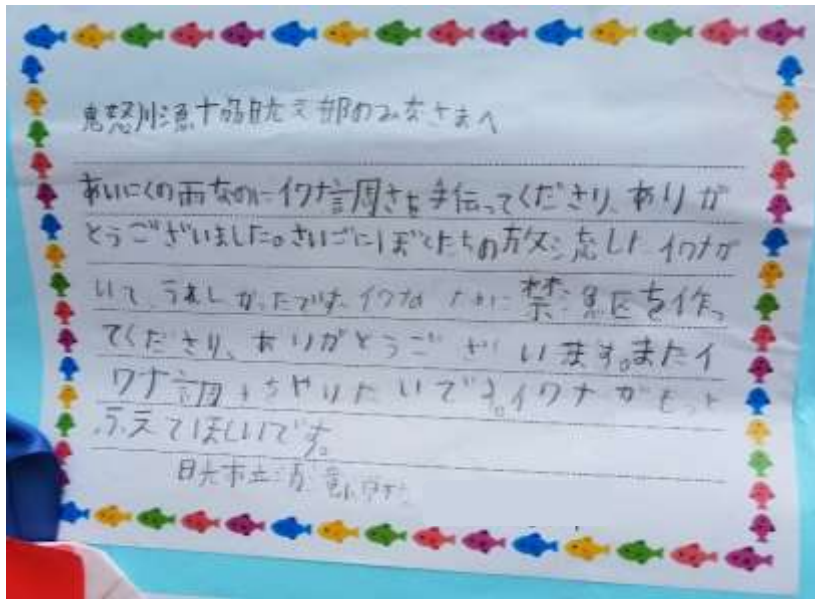 鬼怒川漁協日光支部のみなさまへ
あいにくの雨なのにイワナ調さを手伝ってくださり、ありが
とうございました。さいごにぼくたちの放流したイワナが
いて、うれしかったです。イワナのために禁漁区を作っ
てくださり、ありがとうございます。またイ
ワナ調さやりたいです。イワナがもっと
ふえてほしいです。
日光市立清滝小学校